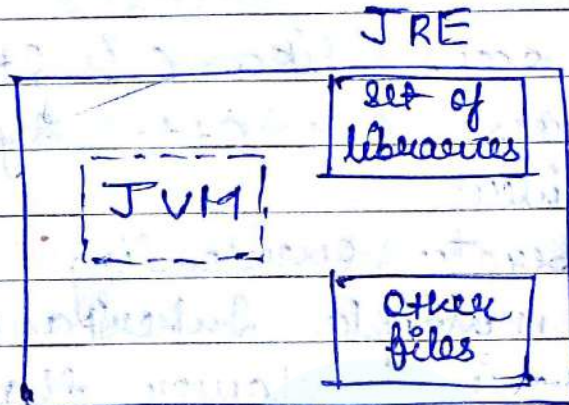 JRE
set of
libraries
JVM
other
files